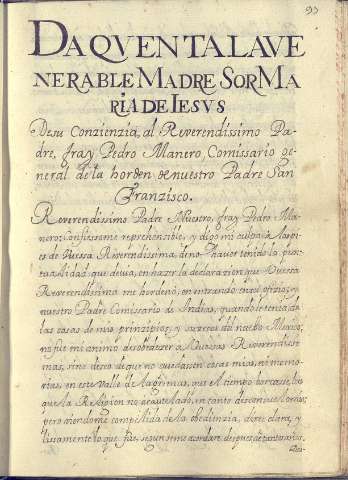 93
DA QVENTA LA VE
NERABLE MADRE SOR MA
RIA DE IESVS
De su Conzienzia, al Reverendissimo Pa-
dre, fray Pedro Manero, Comissario ge-
neral de la horden de nuestro Padre San
Franzisco.
Reverendissimo Padre Nuestro, fray Pedro Ma-
nero: Confiessome reprehensible, y digo mi culpa a los pi-
es de Vuessa Reverendissima, de no haver tenido la pun-
tualidad que devia, en hazer la declarazion que Vuessa
Reverendissima me hordenó, en entrando en el ofizio, a
nuestro Padre Comissario de Indias, quando le
las cosas de mis prinzipios, y suzesos del nuebo Mexico;
no fue mi animo desobedezer a Vuessas Reverendissi-
mas, sino deseo de que no quedassen cosas mias, ni memo-
rias, en este Valle de lagrimas, que el tiempo
que la Religion no a
pero viendome compelida de la obedienzia, dire clara, y
lisamente lo que fue, segun me acordare despues de tantos años.